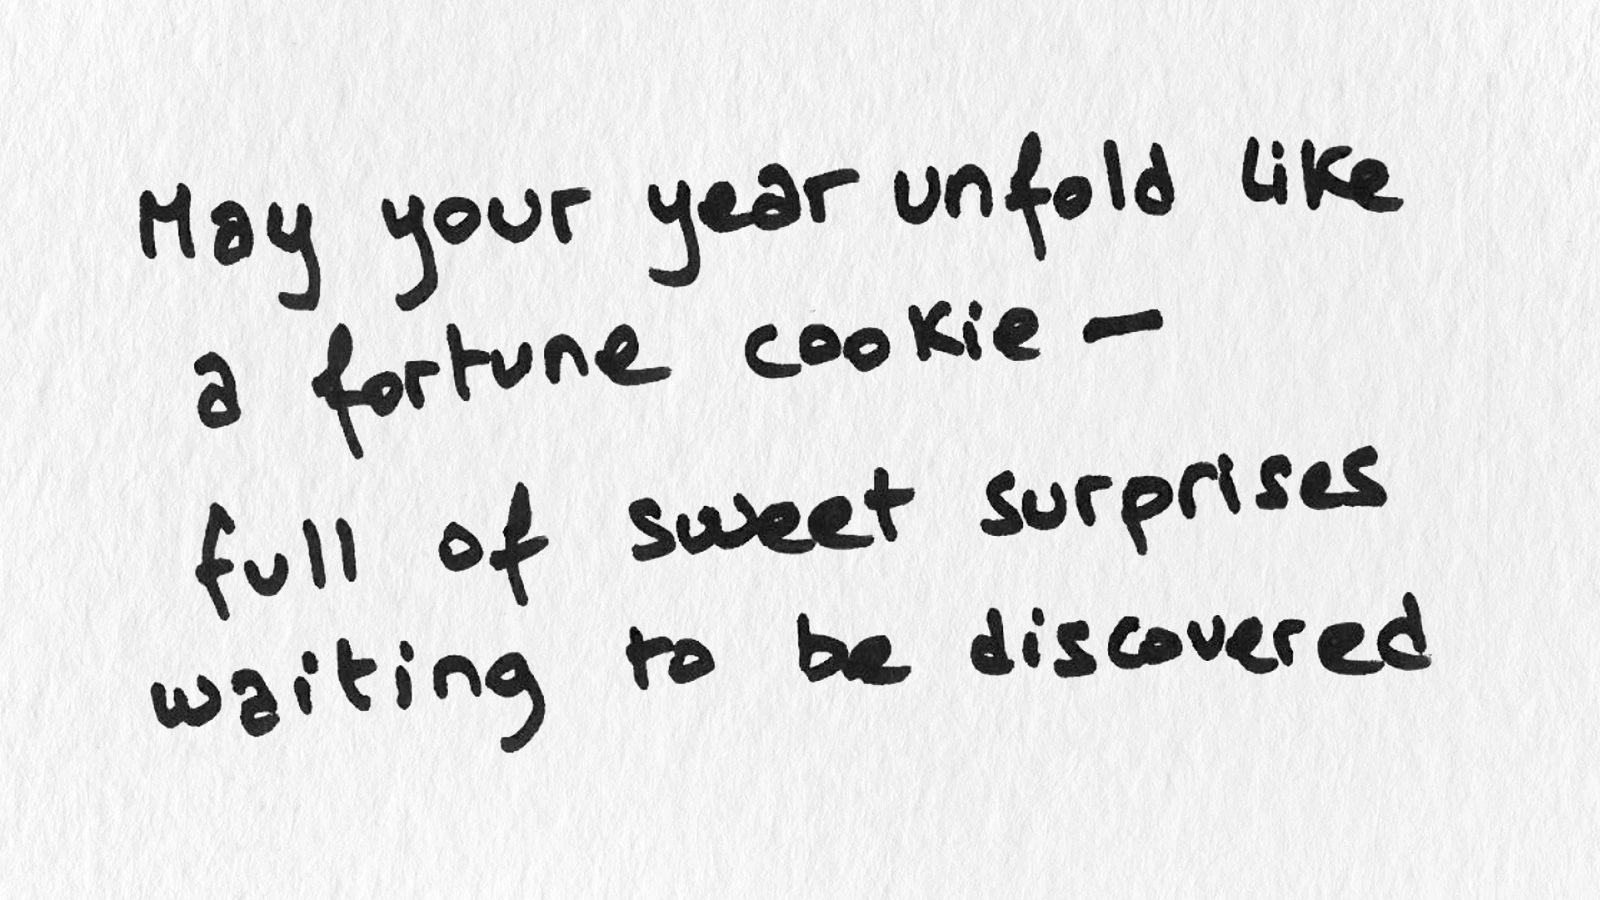 May your year unfold like
a fortune cookie —
full of sweet surprises
waiting to be discovered